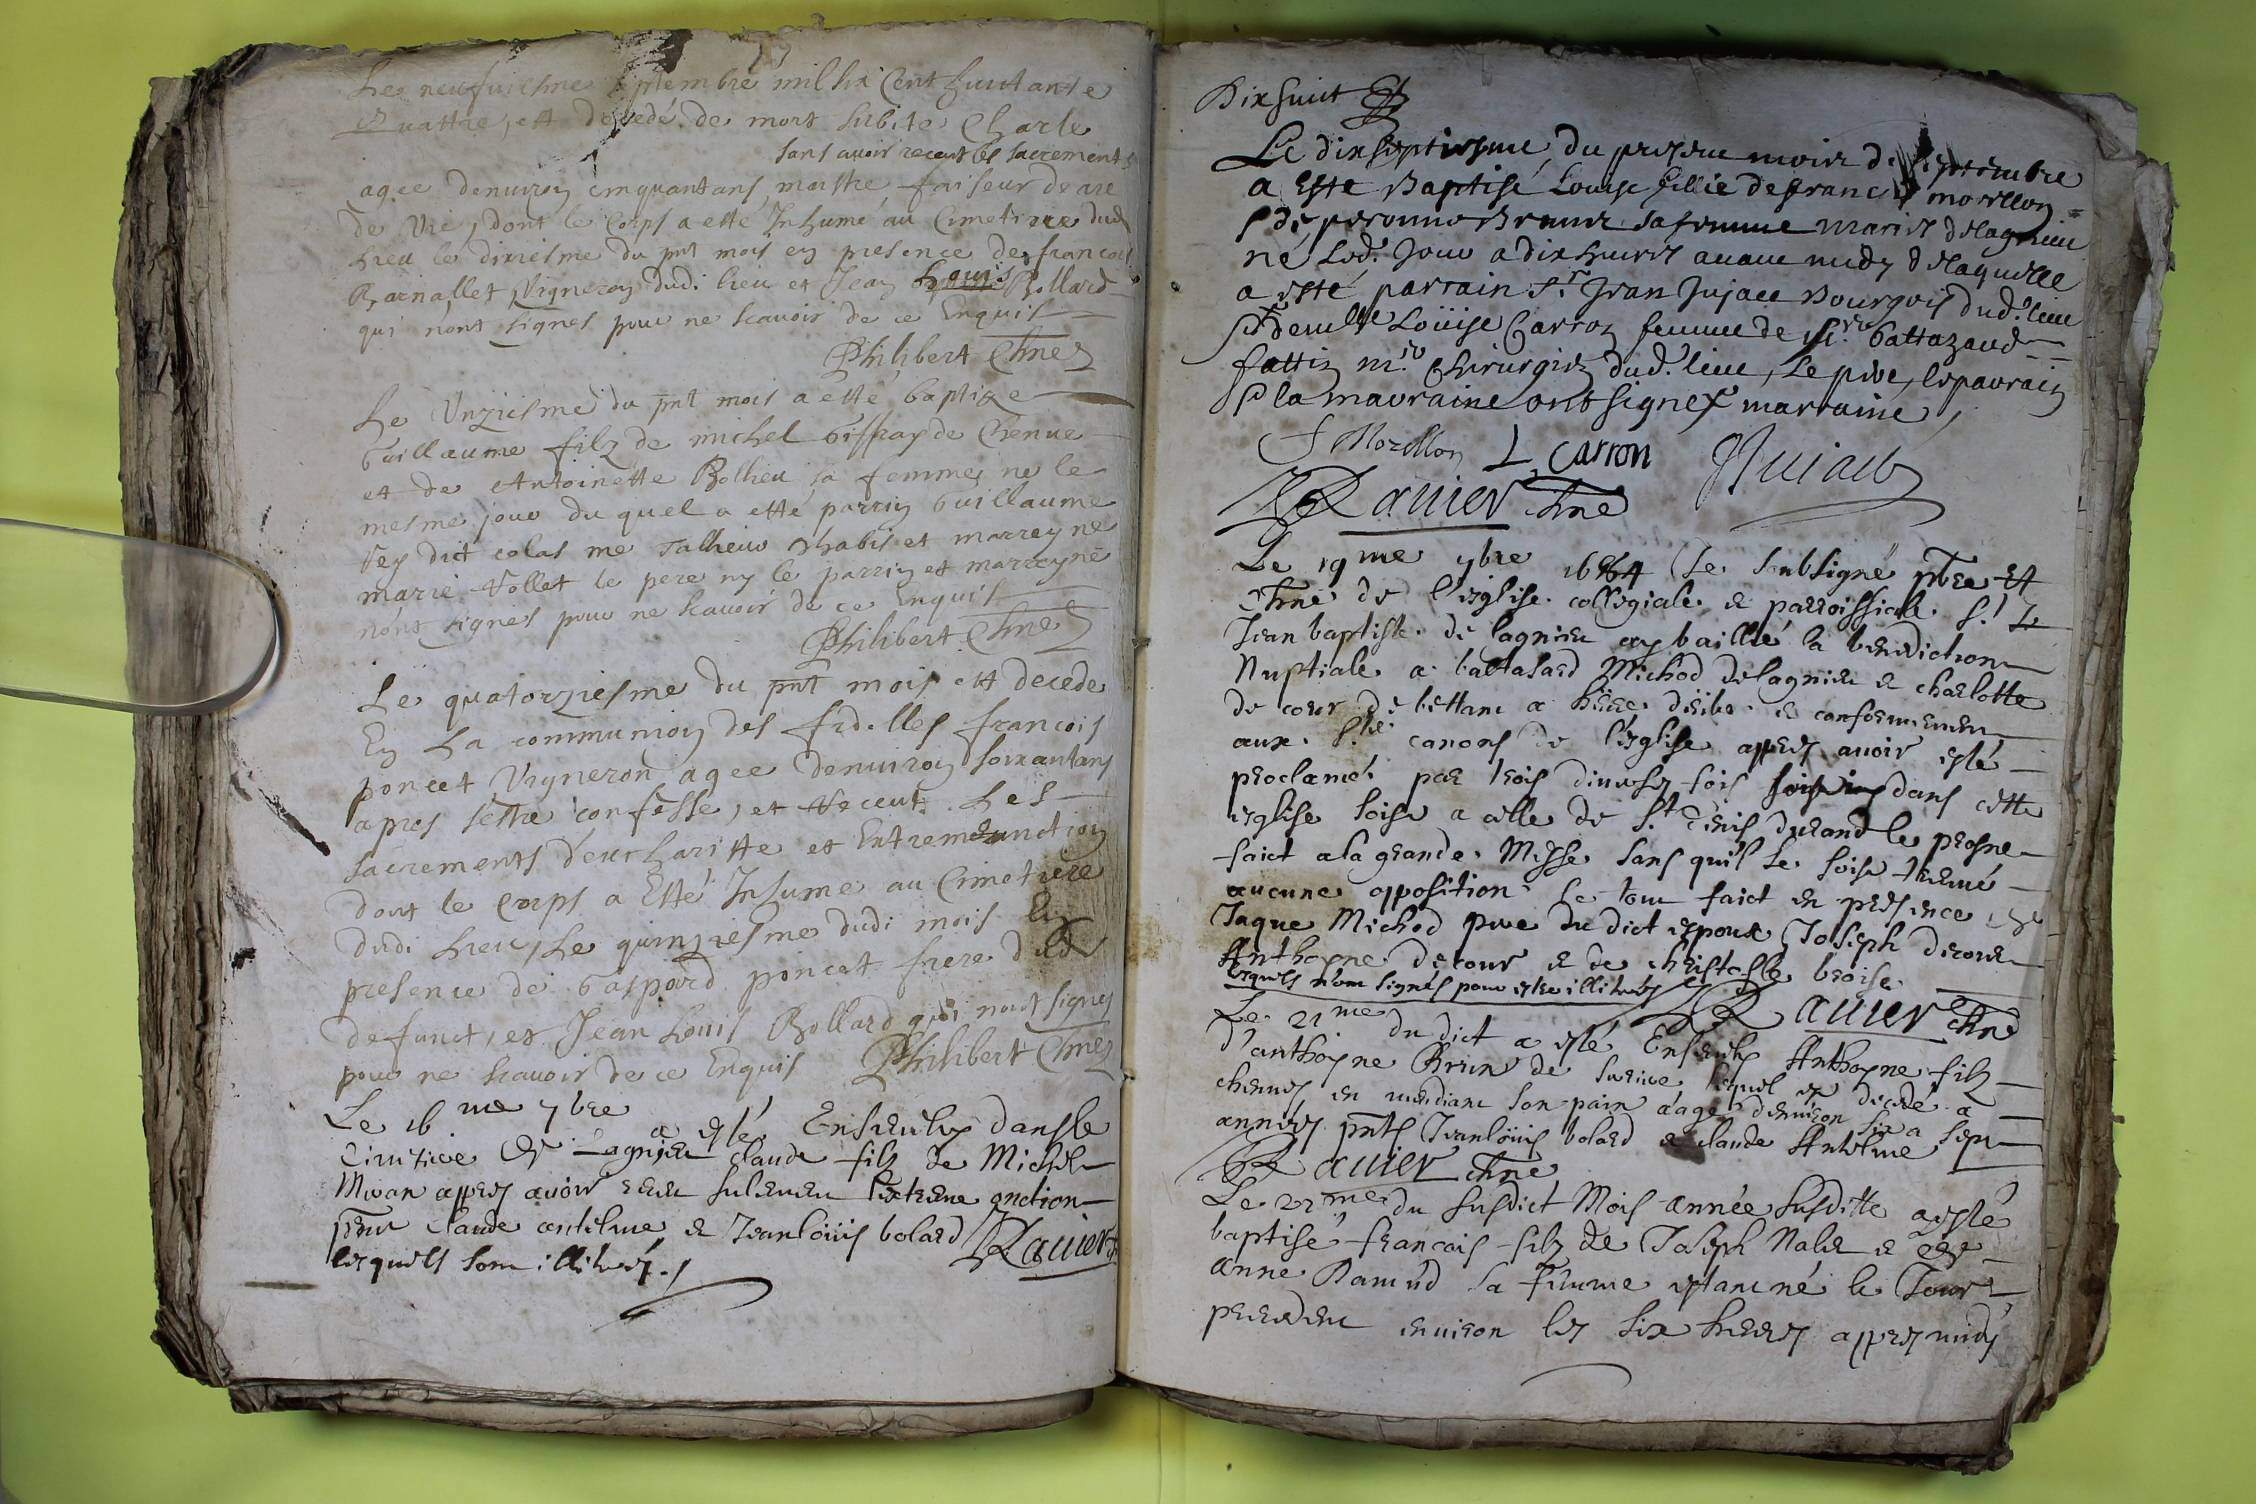 Le neufuiesme septembre mil six Cent huictante
Quattre, est decedé de mort subite Charle
sans avoir receut les sacrements
agee denuiron cinquantans, maistre faiseur de
de vie, dont le Corps a esté Inhumé au Cimetiere dud
lieu le dixiesme du pnt mois en presence de francois
vigneron dudi lieu et Jean Louis Bollard
qui n'ont signes pour ne scavoir de ce Enquis
Philibert Chne
Le Unziesme du pnt mois a esté baptize
Guillaume filz de michel Giffray de Chenue
et de Antoinette Bollieu sa femme, ne le
mesme jour du quel a esté parrin Guillaume
Vey dict colas me Talheur d'habis et marreyne
marie Vollet le pere ny le parrin et marreyne
n'ont signes pour ne scavoir de ce Enquis
Philibert Chne
Le quatorziesme du pnt mois est decede
En La communion des fidelles francois
poncet Vigneron agee denuiron soixantans
apres s'estre confesse, et Receut Les
sacrements d'eucharistie et Extremeunction
dont le Corps a Esté Inhume au Cimetiere
dudi Lieu, Le quinziesme dudi mois En
presence de Gaspard poncet frere dud
defunct, et Jean Louis Bollard qui n'ont signes
pour ne scavoir de ce Enquis Philibert Chne
Le 16 me 7bre a esté Enseuely dans le
Cimetiere de Lagnieu claude filz de Michel
appres avoir receu sulement l'extreme onction
pent Claude antelme & Jeanloüis bolard Rauier
lesquels sont illiterés.
Dixhuit
Le dixseptiesme du present mois de septembre
a Esté Baptisé Louise fillie de francois morellon
& de peronne Brunet sa femme mariés de lagnieu
né Led. Jour a dix heures auant midy de laquelle
a esté parrain Sr Jean Jujact Bourgois dud. lieu
& demlle Loüise Carron femme de Mre battazard
fattin mre Chirurgien dud. lieu, Le pere, le parrain
& la marraine ont signez marraine,
f Morellon L carron JJujact
Rauier chne
Le 19me 7bre 1684 Je soubsigné pbre et
chne de l'esglise collegiale & parroissiale St
Jean baptiste de lagnieu ay baillié la benediction
Nuptiale a baltasard Michod de lagnieu & charlotte
de cour de bettant a heure deüe & conformement
aux Sts canons de l'esglise appres avoir esté
proclamé par trois diuerses fois dans cette
esglise soise a celle de St denis durand le prosne
faict a la grande Messe sans quil se soise treuué
aucune opposition Le tout faict en presence de
Jaque Michod pere du dict espoux Joseph decour
Anthoyne decour & de christofle broise
lesquels n'ont signés pour estre illiterés Rauier chne
Le 21me du dict a esté Enseuely Anthoyne filz
d'anthoyne Brun de lequel est decedé a
chenues en mendiant son pain a'age d'enuiron six a sept
années pnts Jeanloüis bolard & claude Antelme
Rauier chne
Le 22me du susdict Mois année susditte a esté
baptisé francois filz de Joseph Nalet & de
Anne Ramud sa femme estant né le Jour
precedent enuiron les six heures appres midy